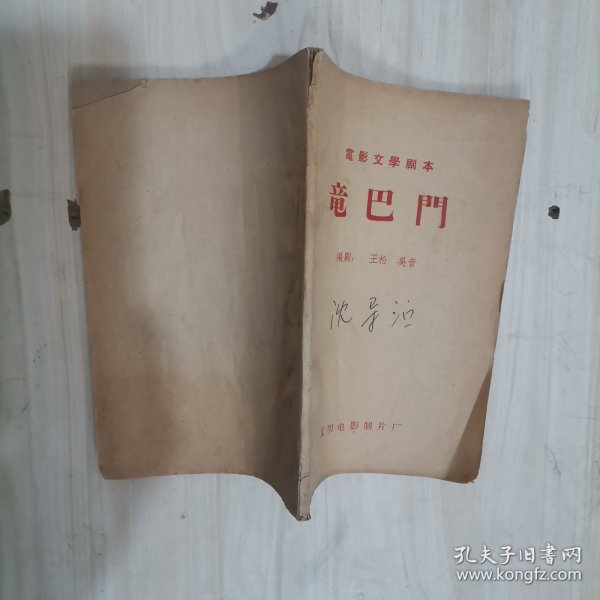 電影文學剧本
竜巴門
编剧: 王松 吳音
明电影制片厂
孔夫子旧书网
www.kongfz.com